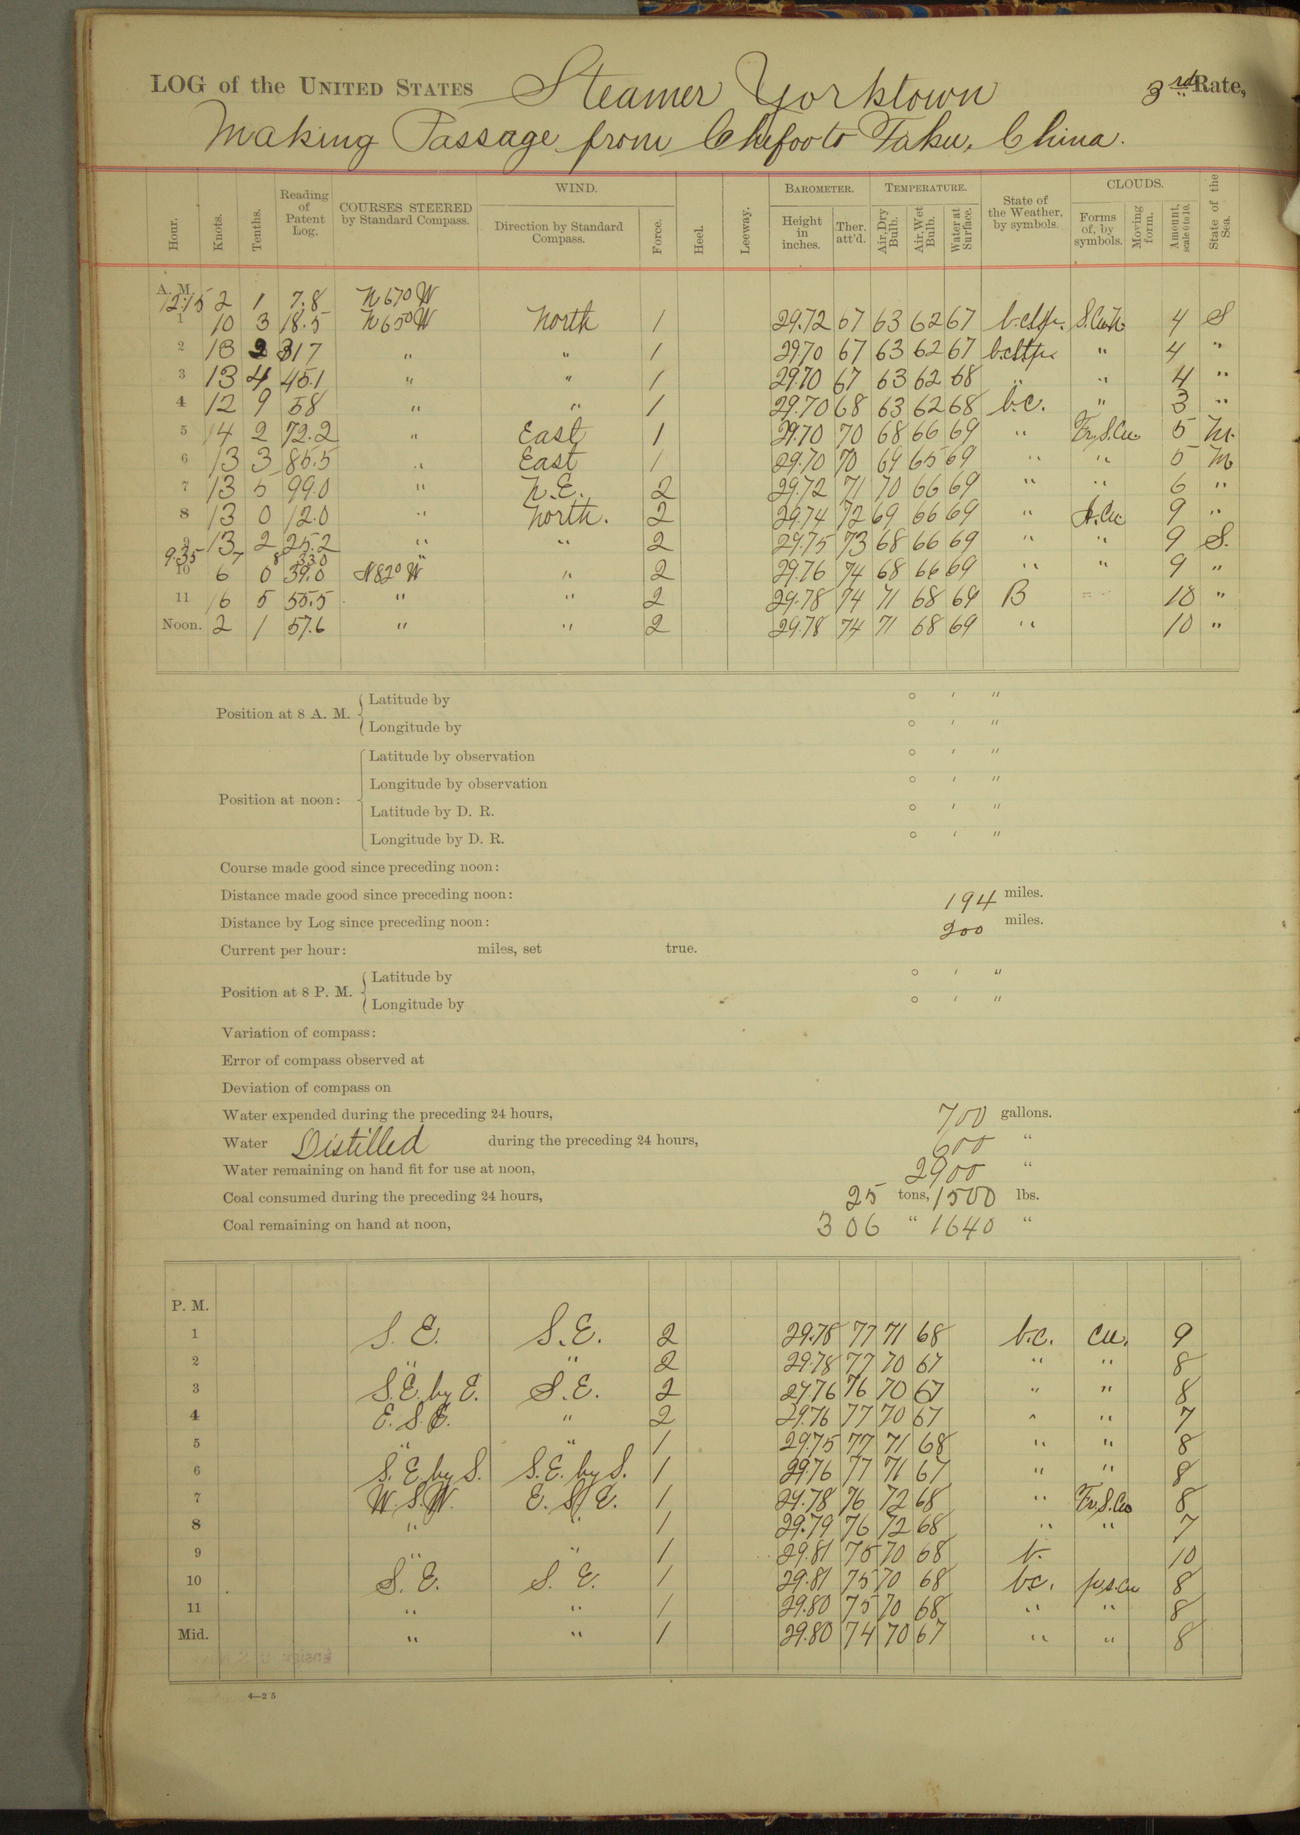 LOG of the UNITED STATES Steamer Yorktown 3rd Rate,
Making Passage from Chefoo to Taku, China.
Hour. Knots. Tenths. Reading of Patent Log. COURSES STEERED by Standard Compass. WIND. Direction by Standard Compass. Force. Heel. Leeway. BAROMETER. Height in inches. Ther. att'd. TEMPERATURE. Air, Dry Bulb. Air, Wet Bulb. Water at Surface. State of the Weather, by symbols. CLOUDS. Forms of, by symbols. Moving form. Amount, scale 0 to 10. State of the Sea.
A. M.
12.15 2 1 7.8 N67°W
1 10 3 18.5 N65°W North 1 29.72 67 63 62 67 S.Cu.N 4 S
2 13 2 317 " " 1 29.70 67 63 62 67 " 4 "
3 13 4 45.1 " " 1 29.70 67 63 62 68 " " 4 "
4 12 9 58 " " 1 29.70 68 63 62 68 b.c. " 3 "
5 14 2 72.2 " East 1 29.70 70 68 66 69 " Fr.S.Cu 5 M.
6 13 3 85.5 " East 1 29.70 70 69 65 69 " " 5 M
7 13 5 99.0 " N.E. 2 29.72 71 70 66 69 " " 6 "
8 13 0 12.0 " North. 2 29.74 72 69 66 69 " A.Cu 9 "
9 13 2 25.2 " " 2 29.75 73 68 66 69 " " 9 S.
9.35 7 8 33.0 "
10 6 0 39.0 N82°W " 2 29.76 74 68 66 69 " " 9 "
11 16 5 55.5 " " 2 29.78 74 71 68 69 B 10 "
Noon. 2 1 57.6 " " 2 29.78 74 71 68 69 " 10 "
Position at 8 A. M. Latitude by ° ′ ″
Longitude by ° ′ ″
Position at noon: Latitude by observation ° ′ ″
Longitude by observation ° ′ ″
Latitude by D. R. ° ′ ″
Longitude by D. R. ° ′ ″
Course made good since preceding noon:
Distance made good since preceding noon: 194 miles.
Distance by Log since preceding noon: 200 miles.
Current per hour: miles, set true.
Position at 8 P. M. Latitude by ° ′ ″
Longitude by ° ′ ″
Variation of compass:
Error of compass observed at
Deviation of compass on
Water expended during the preceding 24 hours, 700 gallons.
Water Distilled during the preceding 24 hours, 600 "
Water remaining on hand fit for use at noon, 2900 "
Coal consumed during the preceding 24 hours, 25 tons, 1500 lbs.
Coal remaining on hand at noon, 306 " 1640 "
P. M.
1 S. E. S. E. 2 29.78 77 71 68 b.c. cu. 9
2 " " 2 29.78 77 70 67 " " 8
3 S.E. by E. S. E. 2 29.76 76 70 67 " " 8
4 E. S. E. " 2 29.76 77 70 67 " " 7
5 " " 1 29.75 77 71 68 " " 8
6 S. E. by S. S. E. by S. 1 29.76 77 71 67 " " 8
7 W. S. W. E. S. E. 1 29.78 76 72 68 " Fr.S.Cu 8
8 " " 1 29.79 76 72 68 " " 7
9 " " 1 29.81 75 70 68 b. 10
10 S. E. S. E. 1 29.81 75 70 68 bc. fr.s.cu 8
11 " " 1 29.80 75 70 68 " " 8
Mid. " " 1 29.80 74 70 67 " " 8
4—25